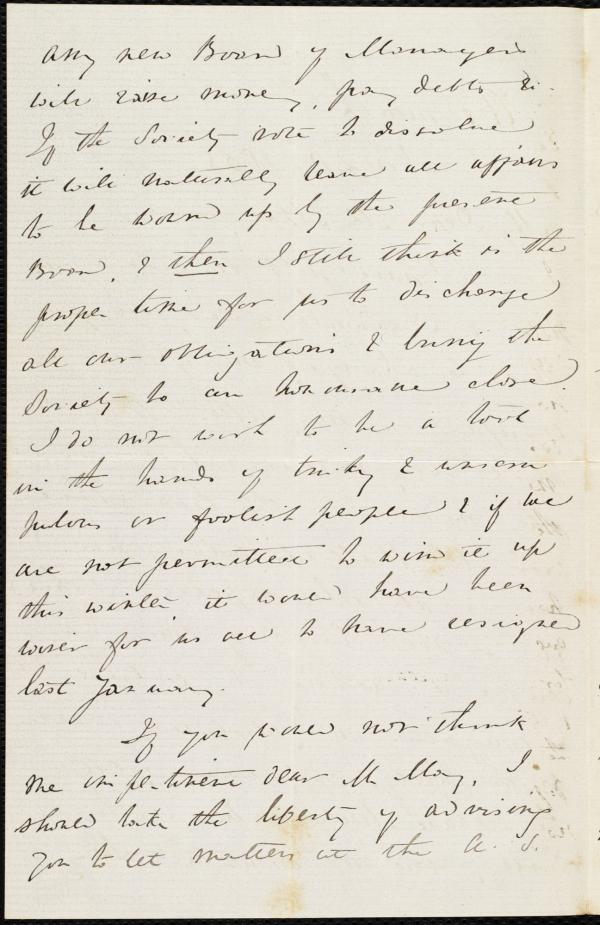 any new Board of Managers
will raise money, pay debts &c.
If the Society vote to dissolve
it will naturally leave all affairs
to be wound up by the present
Board, & then I still think is the
proper time for us to discharge
all our obligations & bring the
Society to an honourable close.
I do not wish to be a tool
in the hands of tricky & unscru
pulous or foolish people & if we
are not permitted to wind it up
this winter, it would have been
wiser for us all to have resigned
last January.
If you would not think
me impertinent dear Mr May, I
should take the liberty of advising
you to let matters at the A. S.